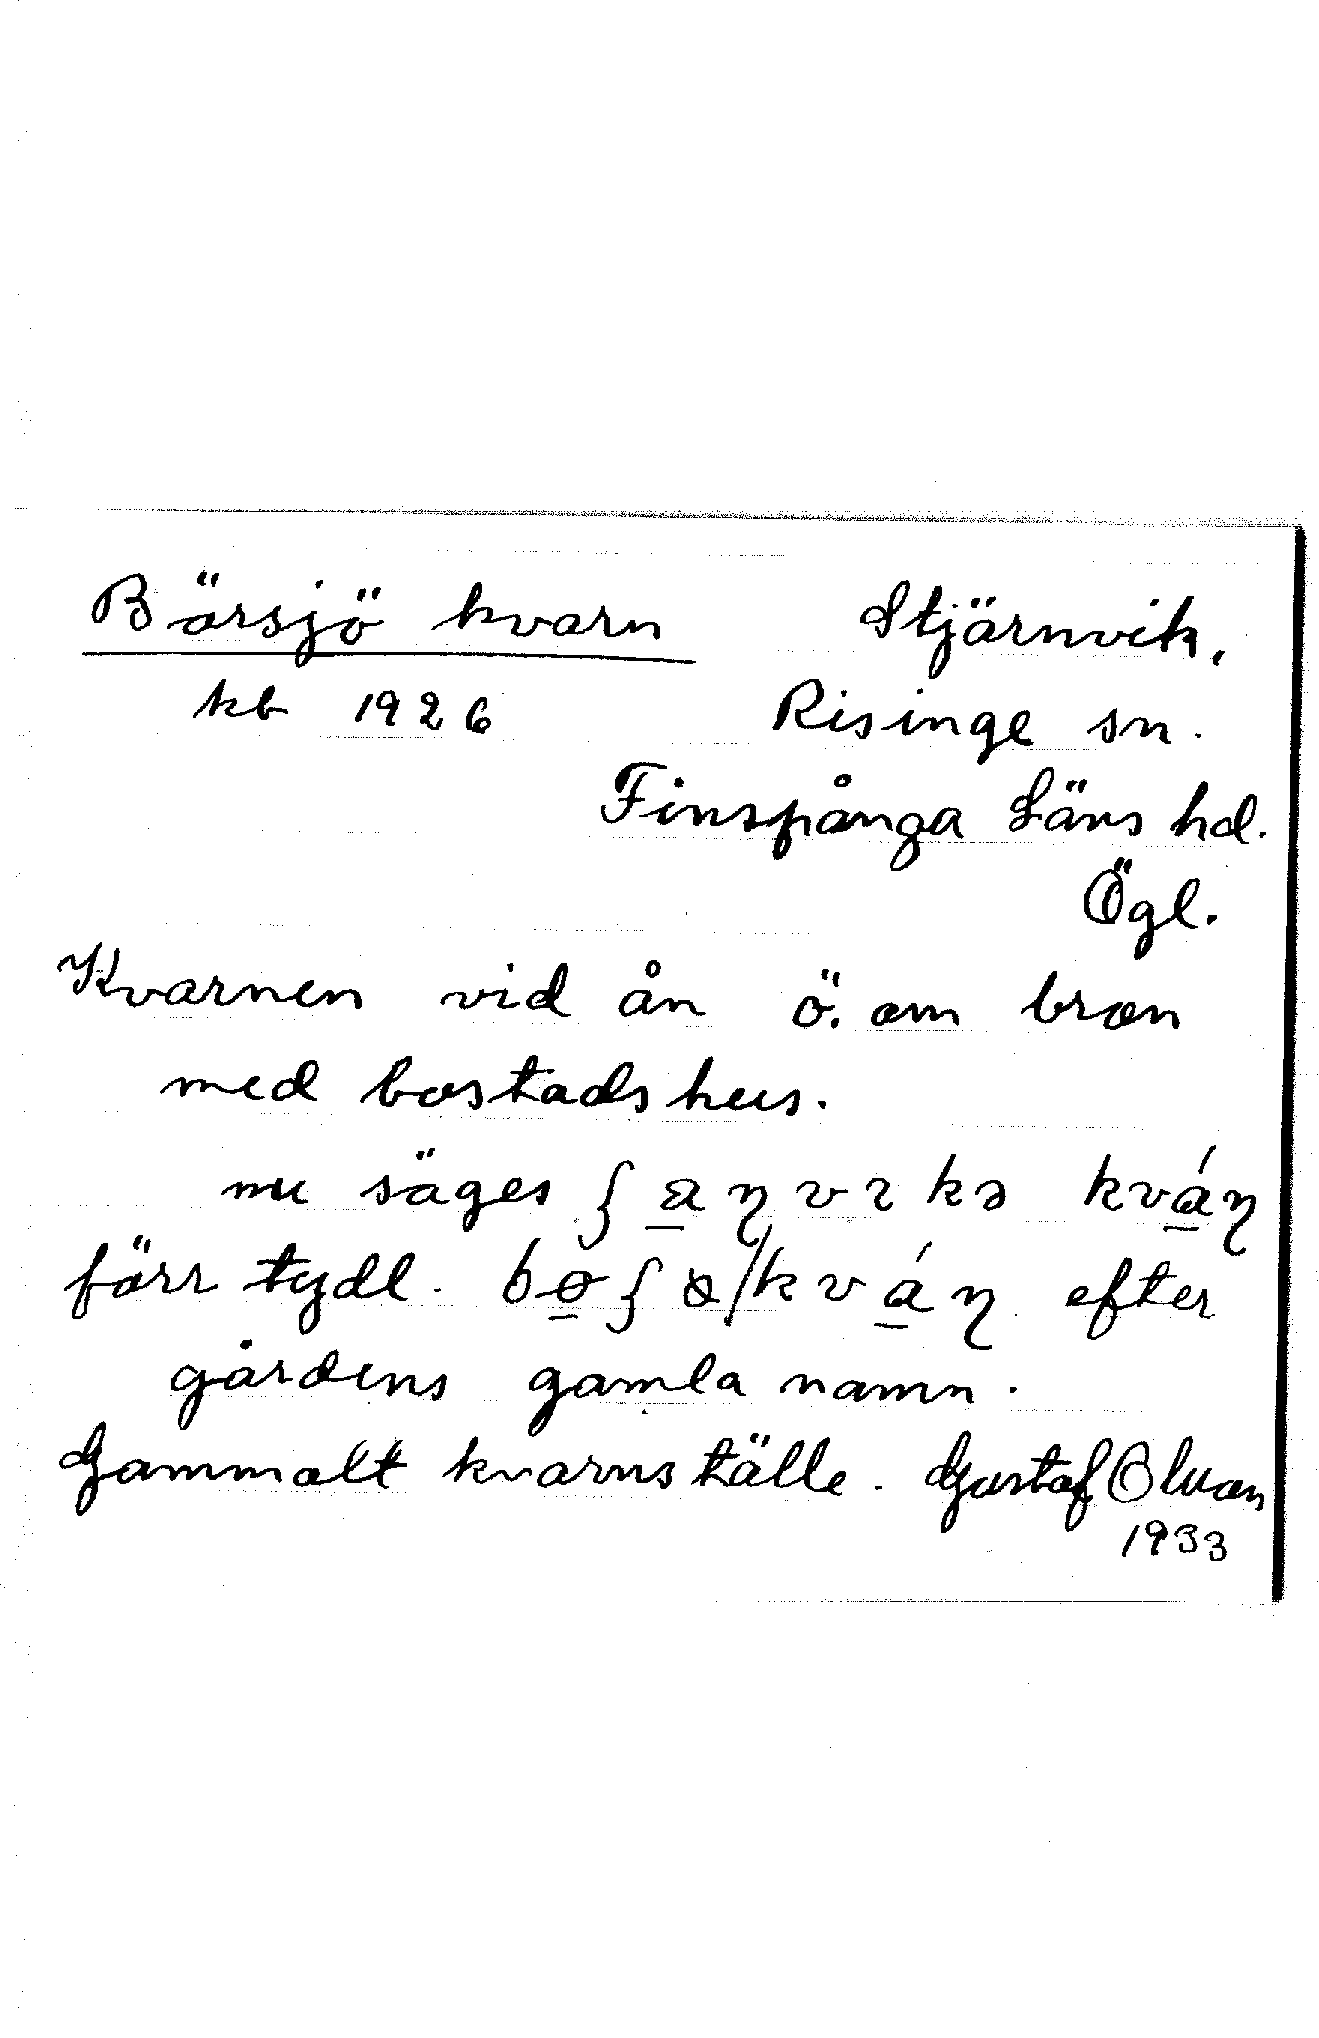 Börsjö kvarn Stjärnvik,
kb 1926 Risinge sn.
Finspånga Läns hd.
Ögl.
Kvarnen vid ån ö. om bron
med bostadshus.
nu säges kváɳ
förr tydl. efter
gårdens gamla namn.
Gammalt kvarnställe. Gustaf Olson
1933